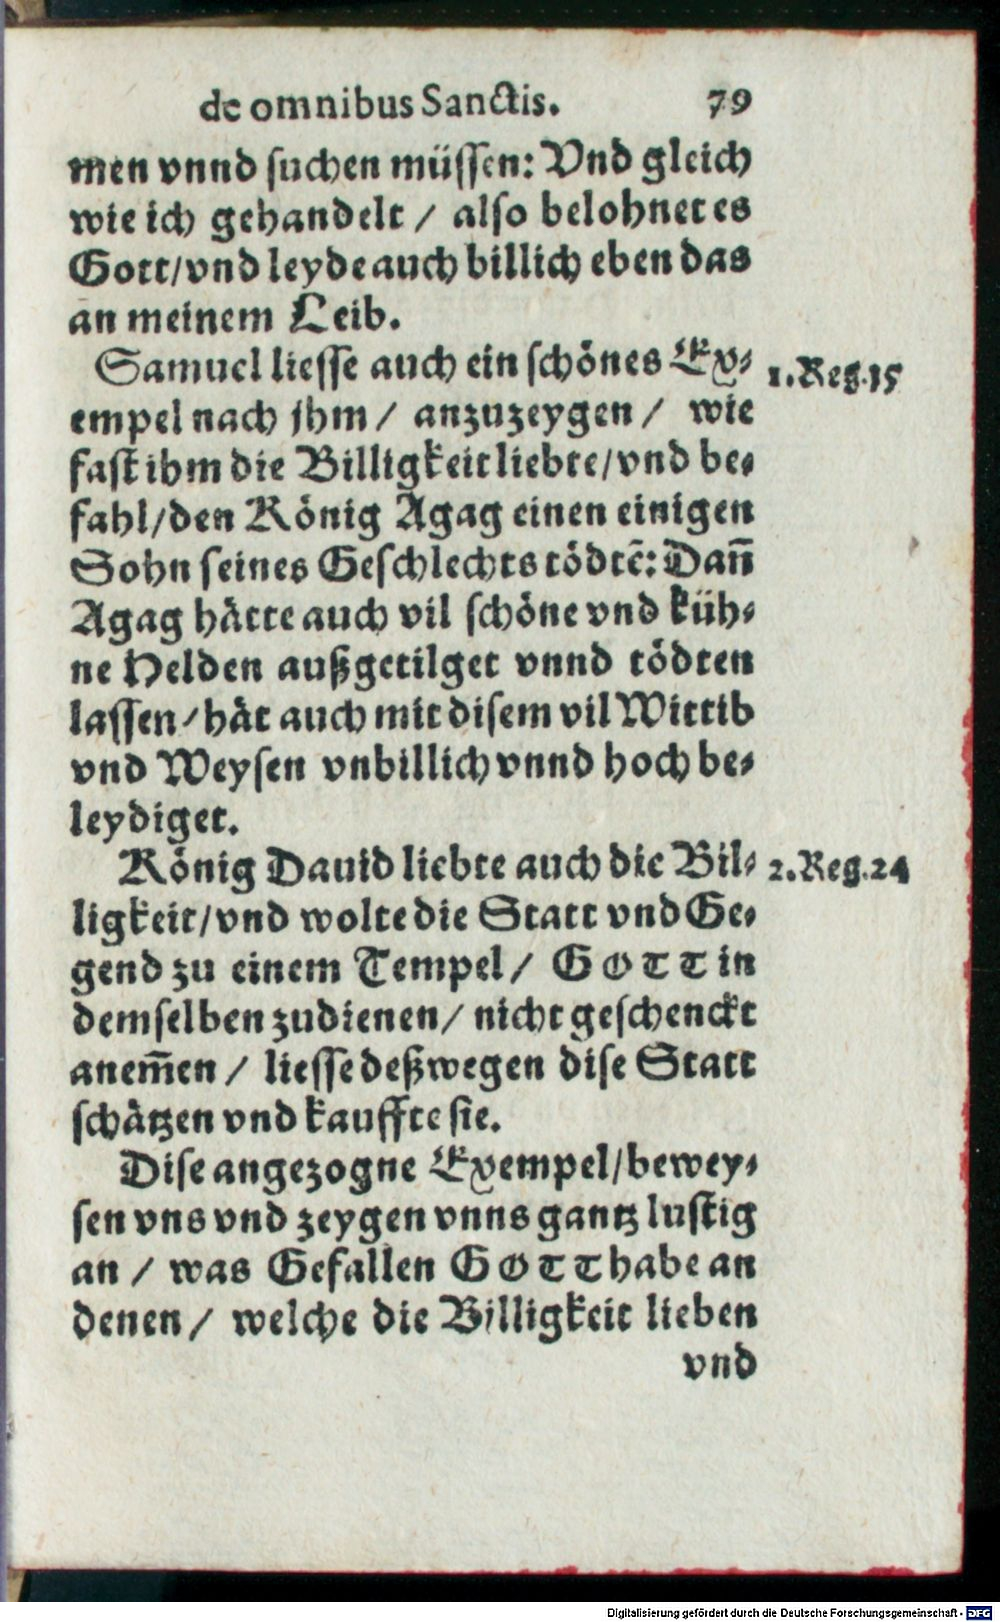 de omnibus Sanctis. 79
men vnnd suchen müssen: Vnd gleich
wie ich gehandelt / also belohnet es
Gott/vnd leyde auch billich eben das
an meinem Leib.
Samuel liesse auch ein schönes Ex-
1. Reg. 15
empel nach jhm / anzuzeygen / wie
fast ihm die Billigkeit liebte/vnd be-
fahl/den König Agag einen einigen
Sohn seines Geschlechts tödtē: Dañ
Agag hätte auch vil schöne vnd küh-
ne Helden außgetilget vnnd tödten
lassen/hät auch mit disem vil Wittib
vnd Weysen vnbillich vnnd hoch be-
leydiget.
König Dauid liebte auch die Bil-
2. Reg. 24
ligkeit/vnd wolte die Statt vnd Ge-
gend zu einem Tempel / GOTT in
demselben zudienen/ nicht geschenckt
anem̄en / liesse deßwegen dise Statt
schätzen vnd kauffte sie.
Dise angezogne Exempel/bewey-
sen vns vnd zeygen vnns gantz lustig
an / was Gefallen GOTT habe an
denen / welche die Billigkeit lieben
vnd
Digitalisierung gefördert durch die Deutsche Forschungsgemeinschaft - DFG